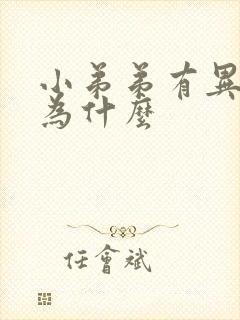 小弟弟有異
為什麼
任會斌